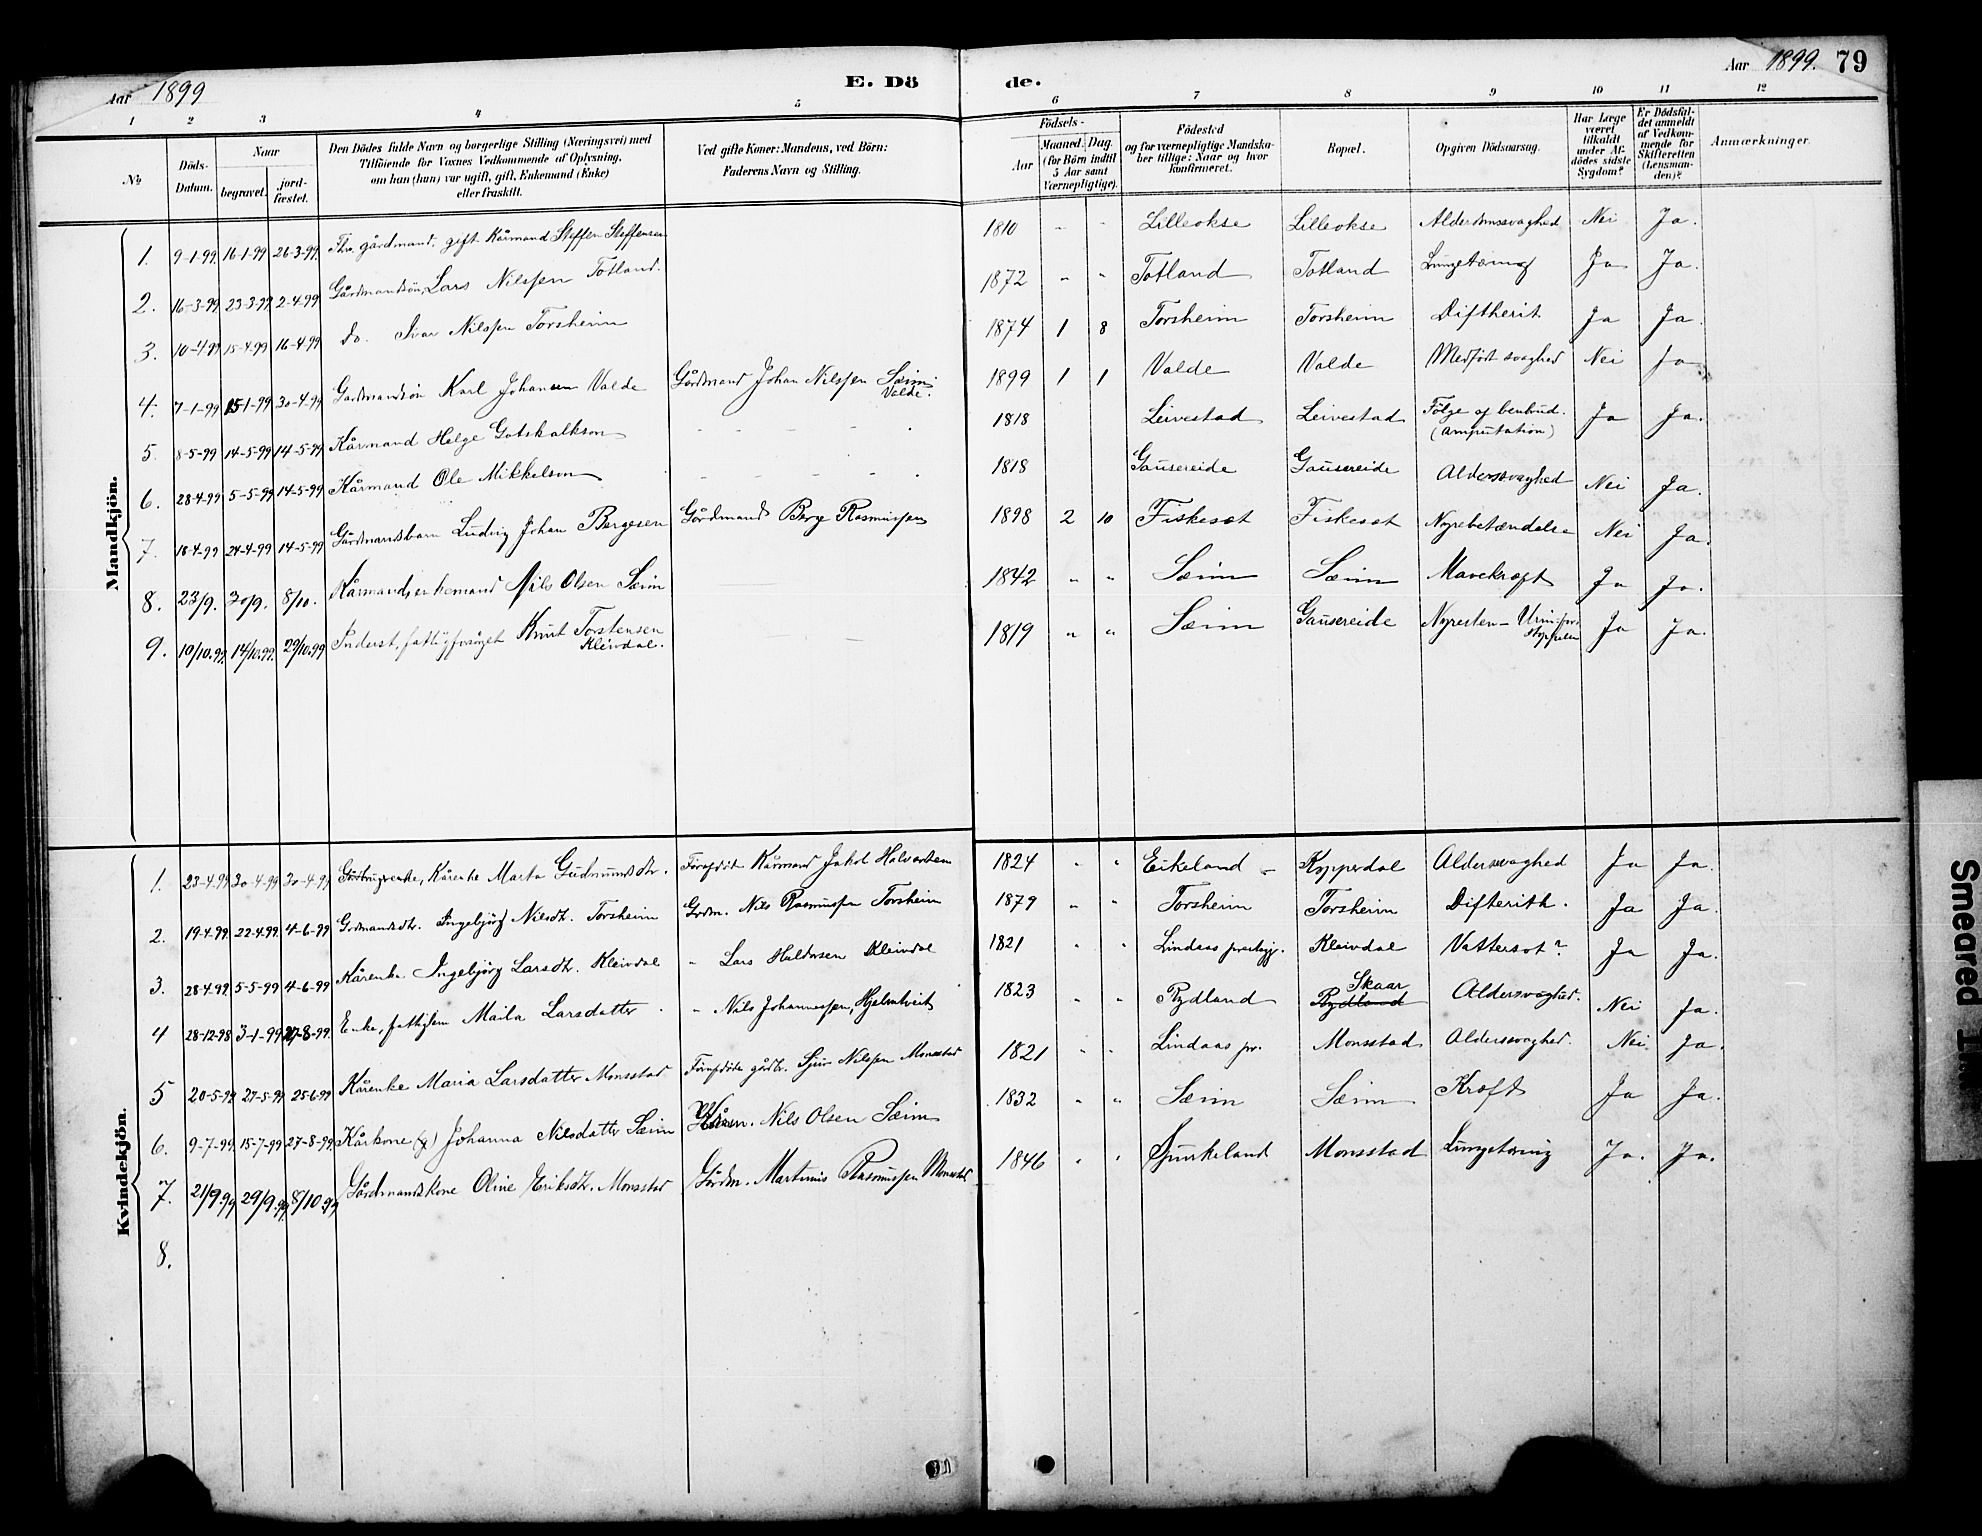 Aar 1899
E. Dö
de.
Aar 1899. 79
1 2 3 4 5 6 7 8 9 10 11 12
No
Döds-Datum.
Naar
begravet.
jord-fæstet.
Den Dödes fulde Navn og borgerlige Stilling (Næringsvei) med
Tilföiende for Voxnes Vedkommende af Oplysning,
om han (hun) var ugift, gift, Enkemand (Enke)
eller fraskilt.
Ved gifte Koner: Mandens, ved Börn:
Faderens Navn og Stilling.
Födsels-
Aar
Maaned. Dag.
(for Börn indtil
5 Aar samt
Værnepligtige).
Födested
og for værnepligtige Mandska-
ber tillige: Naar og hvor
konfirmeret.
Bopæl.
Opgiven Dödsaarsag.
Har Læge
været
tilkaldt
under Af-
dödes sidste
Sygdom?
Er Dödsfal-
det anmeldt
af Vedkom-
mende for
Skifteretten
(Lensman-
den)?
Anmærkninger.
Mandkjön.
1. 9-1-99 16-1-99 26-3-99 gårdmand, gift Kårmand Steffen Steffensen 1810 " " Lilleokse Lilleokse Alderdomssvaghed Nei Ja.
2. 16-3-99 23-3-99 2-4-99 Gårdmandsön, Lars Nilssen Totland. 1872 " " Totland Totland Lungetæring Ja Ja.
3. 10-4-99 15-4-99 16-4-99 Do. Ivar Nilssen Torsheim 1874 1 8 Torsheim Torsheim Diftherit Ja Ja.
4. 7-1-99 15-1-99 30-4-99 Gaardmandsön Karl Johansen Valde Gårdmand Johan Nilssen Sæim Valde. 1899 1 1 Valde Valde Medfødt svaghed Nei Ja
5. 8-5-99 14-5-99 14-5-99 Kårmand Helge Gotskalkson 1818 Leivestad Leivestad Følge af benbrud. (amputation) Ja Ja.
6. 28-4-99 5-5-99 14-5-99 Kårmand Ole Mikkelson 1818 Gausereide Gausereide Alderssvaghed Nei Ja.
7. 18-4-99 24-4-99 14-5-99 Gårdmandsbarn Ludvig Johan Bergesen Gårdmand Berge Rasmussen 1898 2 10 Fiskeset Fiskeset Nyrebetændelse Nei Ja.
8. 23/9. 30/9. 8/10. Kårmand, enkemand Nils Olsen Sæim 1842 " " Sæim Sæim Mavekræft Ja Ja.
9. 10/10.99. 14/10.99. 29/10.99 Inderst, fattigforsørget Knut Torstensen Kleivdal. 1819 " " Sæim Gausereide Ja Ja.
Kvindekjön.
1. 23-4-99 30-4-99 30-4-99 Kårenke Marta Gudmundsdtr. Kårmand Jakob Halvorsen 1824 " " Eikeland Kypperdal Alderssvaghed Ja Ja.
2. 19-4-99. 22-4-99. 4-6-99 Grdmandsdtr. Ingebjörg Nilsdtr. Torsheim Grdm. Nils Rasmussen Torsheim 1879 " " Torsheim Torsheim Difterith. Ja Ja.
3. 28-4-99. 5-5-99 4-6-99 Kårenke Ingebjörg Larsdtr. Kleivdal " Lars Haldorsen Kleivdal 1821 " " Lindaas prestegj. Kleivdal Vattersot? Ja Ja.
4 28-12-98 3-1-99 27-8-99. Enke, fattiglem Maila Larsdatter " Nils Johannessen, Hjelmtveit 1823 " " Rydland Rydland Skaar Alderssvaghed. Nei Ja.
5 20-5-99 27-5-99 25-6-99 Kårenke Maria Larsdatter Monsstad Sjur Nilssen Monsstad 1821 " " Lindaas pr. Monsstad Alderssvaghed. Nei. Ja.
6. 9-7-99. 15-7-99 27-8-99. Kårkone (g) Johanna Nilsdatter Sæim Nils Olsen Sæim 1832 " " Sæim Sæim Kræft Ja Ja.
7. 21/9.99 29/9.99 8/10.99 Gårdmandskone Oline Eriksdtr. Monsstad Gårdm. Martinus Rasmussen Monsstad 1846 " " Sjurkeland Monsstad Lungetæring Ja. Ja.
8.
Smeared Ink